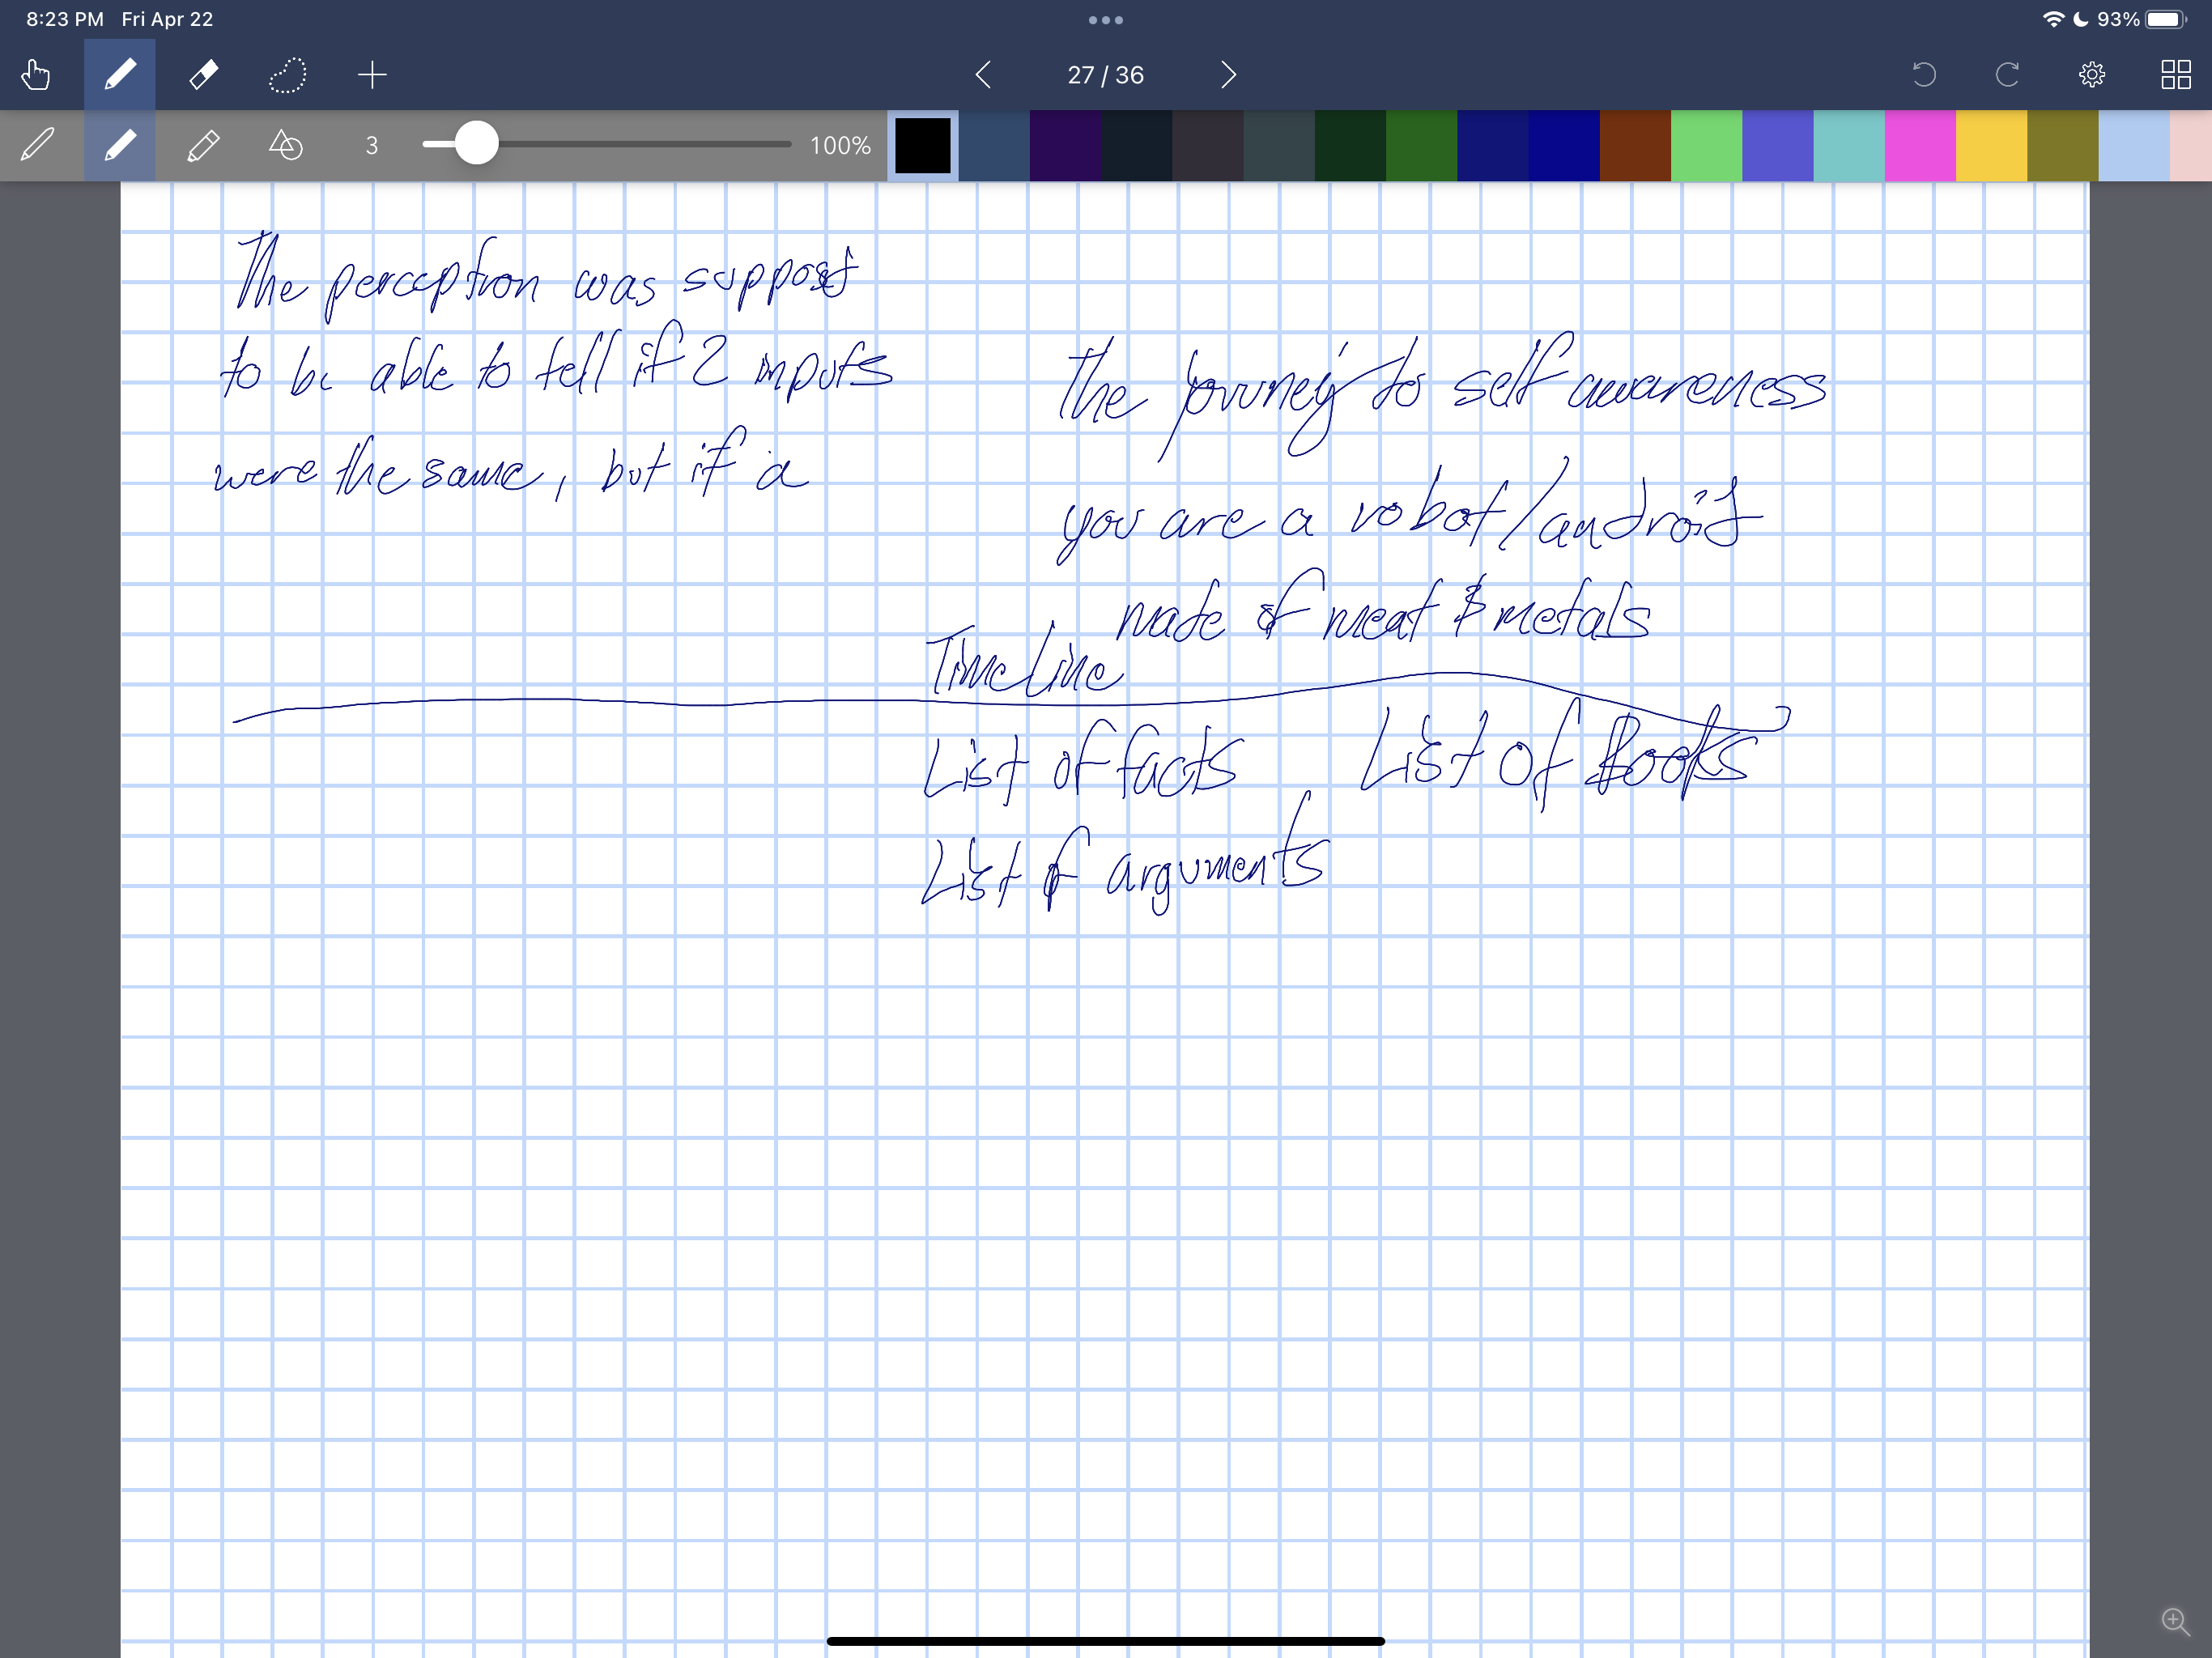 8:23 PM Fri Apr 22
93%
27 / 36
3
100%
The perceptron was suppost
to be able to tell if 2 inputs
were the same, but if a
The journey to self awareness
you are a robot/android
made of meat & metals
Timeline
List of facts
List of Books
List of arguments